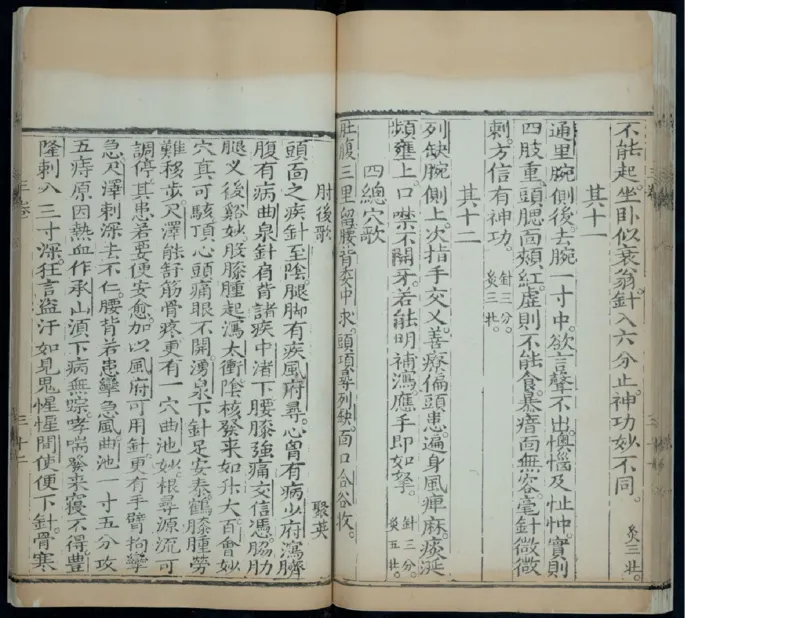 不能起坐卧似衰翁針入六分止神功妙不同 灸三壯
其十一
通里腕側後去腕一寸中欲言聲不出懊惱及怔忡實則
四肢重頭腮面頰紅虛則不能食暴瘖面無容毫針微微
刺方信有神功 針三分 灸三壯
其十二
列缺腕側上次指手交叉善療偏頭患遍身風痺麻痰涎
頻壅上口噤不開牙若能明補瀉應手即如拏 針三分 灸五壯
四總穴歌
肚腹三里留腰背委中求頭項尋列缺面口合谷收
肘後歌 聚英
頭面之疾針至陰腿脚有疾風府尋心胷有病少府瀉臍
腹有病曲泉針肩背諸疾中渚下腰膝強痛交信憑脇肋
腿叉後谿妙股膝腫起瀉太衝陰核發來如升大百會妙
穴真可駭頂心頭痛眼不開湧泉下針足安泰鶴膝腫勞
難移步尺澤能舒筋骨疼更有一穴曲池妙根尋源流可
調停其患若要便安愈加以風府可用針更有手臂拘攣
急尺澤刺深去不仁腰背若患攣急風曲池一寸五分攻
五痔原因熱血作承山湏下病無蹤哮喘發来寢不得豊
隆刺入三寸深狂言盜汗如見鬼惺惺間使便下針骨寒
三卷
三十二